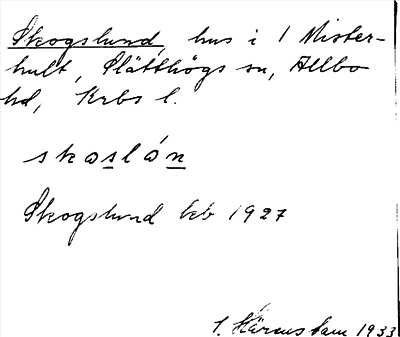 Skogslund, hus i 1 Mister-
hult, Slätthögs sn, Allbo
hd, Krbs l.
skoslón
Skogslund kb 1927
1933